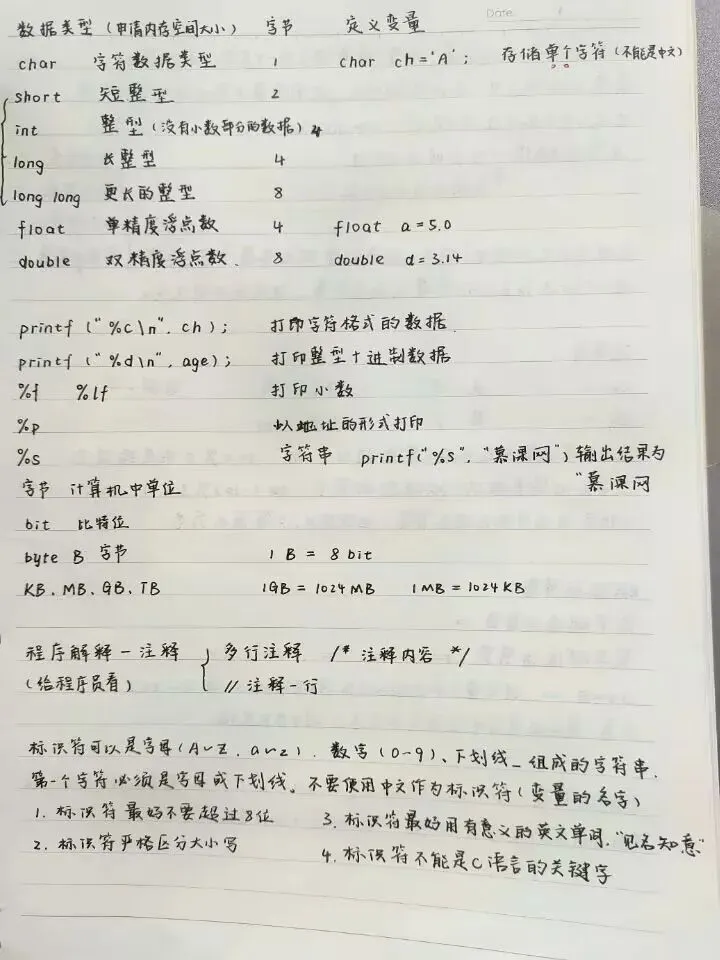 Date
数据类型（申请内存空间大小） 字节 定义变量
char 字符数据类型 1 char ch='A'; 存储单个字符（不能是中文）
short 短整型 2
int 整型（没有小数部分的数据）4
long 长整型 4
long long 更长的整型 8
float 单精度浮点数 4 float a=5.0
double 双精度浮点数. 8 double d=3.14
printf ("%c\n", ch); 打印字符格式的数据.
printf ("%d\n", age); 打印整型十进制数据
%f %lf 打印小数
%p 以地址的形式打印
%s 字符串 printf("%s", "慕课网") 输出结果为
"慕课网
字节 计算机中单位
bit 比特位
byte B 字节 1 B = 8 bit
KB、MB、GB、TB 1GB = 1024MB 1MB = 1024KB
程序解释－注释 { 多行注释 /* 注释内容 */
（给程序员看） // 注释一行
标识符可以是字母(A~Z, a~z)、数字(0-9)、下划线_组成的字符串,
第一个字符必须是字母或下划线。不要使用中文作为标识符(变量的名字)
1. 标识符最好不要超过8位 3. 标识符最好用有意义的英文单词, "见名知意"
2. 标识符严格区分大小写 4. 标识符不能是C语言的关键字